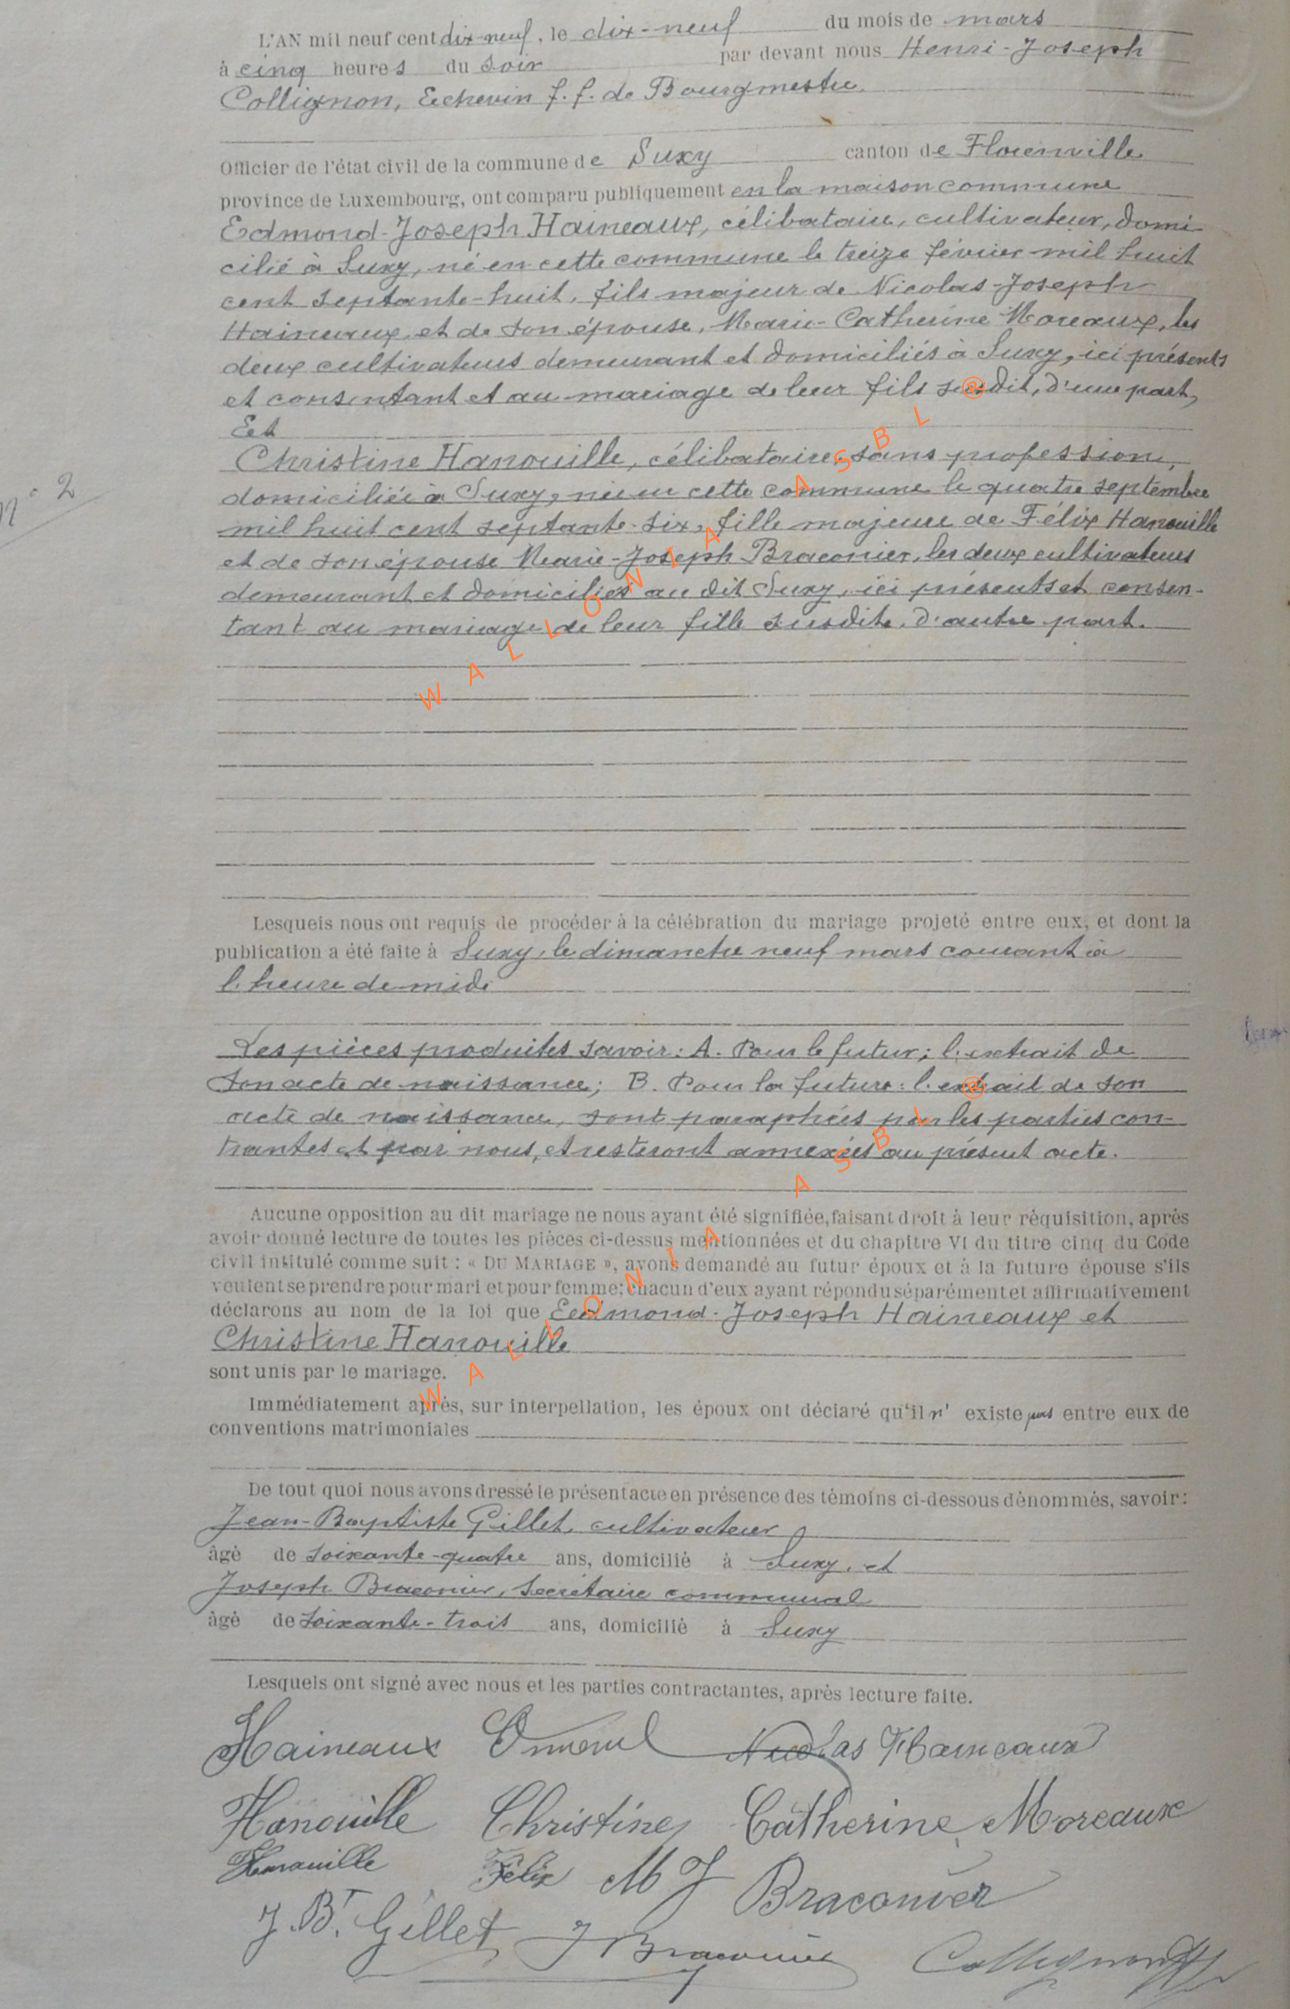 L'AN mil neuf cent dix-neuf, le dix-neuf du mois de mars
à cinq heures du soir par devant nous Henri-Joseph
Collignon, Echevin f.f. de Bourgmestre.
Officier de l'état civil de la commune de Suxy canton de Florenville
province de Luxembourg, ont comparu publiquement en la maison commune
Edmond-Joseph Haineaux, célibataire, cultivateur, domi-
cilié à Suxy, né en cette commune le treize février mil huit
cent septante-huit, fils majeur de Nicolas-Joseph
Haineaux, et de son épouse, Marie-Catherine Moreaux, les
deux cultivateurs demeurant et domiciliés à Suxy, ici présents
et consentant et au mariage de leur fils susdit, d'une part,
Et
Christine Hanouille, célibataire, sans profession,
domiciliée à Suxy, née en cette commune le quatre septembre
N° 2
mil huit cent septante-six, fille majeure de Félix Hanouille
et de son épouse Marie-Joseph Braconier, les deux cultivateurs
demeurant et domiciliés au dit Suxy, ici présents et consen-
tant au mariage de leur fille susdite, d'autre part.
WALLONIA ASBL ®
Lesquels nous ont requis de procéder à la célébration du mariage projeté entre eux, et dont la
publication a été faite à Suxy, le dimanche neuf mars courant à
l'heure de midi
Les pièces produites savoir : A. Pour le futur ; l'extrait de
son acte de naissance ; B. Pour la future : l'extrait de son
acte de naissance, sont paraphées par les parties con-
trantes et par nous, et resteront annexées au présent acte.
Aucune opposition au dit mariage ne nous ayant été signifiée, faisant droit à leur réquisition, après
avoir donné lecture de toutes les pièces ci-dessus mentionnées et du chapitre VI du titre cinq du Code
civil intitulé comme suit : « DU MARIAGE », avons demandé au futur époux et à la future épouse s'ils
veulent se prendre pour mari et pour femme; chacun d'eux ayant répondu séparément et affirmativement
déclarons au nom de la loi que Edmond-Joseph Haineaux et
Christine Hanouille
sont unis par le mariage.
WALLONIA ASBL ®
Immédiatement après, sur interpellation, les époux ont déclaré qu'il n' existe pas entre eux de
conventions matrimoniales
De tout quoi nous avons dressé le présent acte en présence des témoins ci-dessous dénommés, savoir :
Jean-Baptiste Gillet, cultivateur
âgé de soixante-quatre ans, domicilié à Suxy, et
Joseph Braconier, secrétaire communal
âgé de soixante-trois ans, domicilié à Suxy
Lesquels ont signé avec nous et les parties contractantes, après lecture faite.
Haineaux Edmond Nicolas Haineaux
Hanouille Christine Catherine Moreaux
Hanouille Félix M J Braconier
J. Bt. Gillet J Braconier Collignon